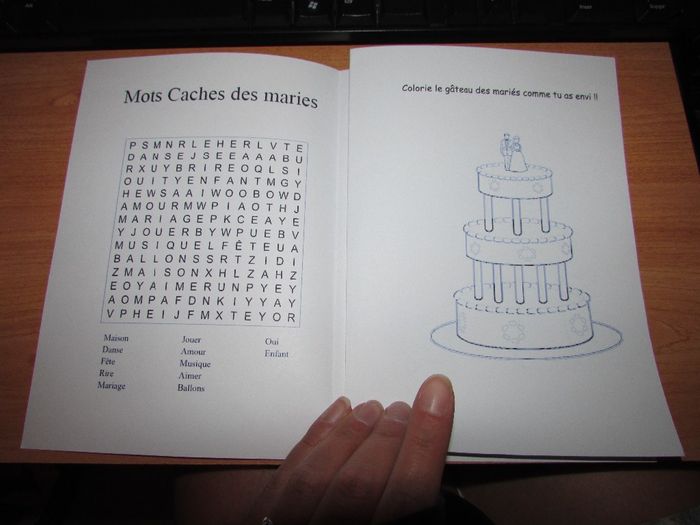 Mots Caches des maries
P S M N R L E H E R L V T E
D A N S E J S E E A A A B U
R X U Y B R I R E O Q L S I
O U I T Y E N F A N T M G Y
H E W S A A I W O O B O W D
A M O U R M W P I A O T H J
M A R I A G E P K C E A Y E
Y J O U E R B Y W P U E B V
M U S I Q U E L F Ê T E U A
B A L L O N S S R T Z I D I
Z M A I S O N X H L Z A H Z
E O Y A I M E R U N P Y E Y
A O M P A F D N K I Y Y A Y
V P H E I J F M X T E Y O R
Maison
Danse
Fête
Rire
Mariage
Jouer
Amour
Musique
Aimer
Ballons
Oui
Enfant
Colorie le gâteau des mariés comme tu as envi !!